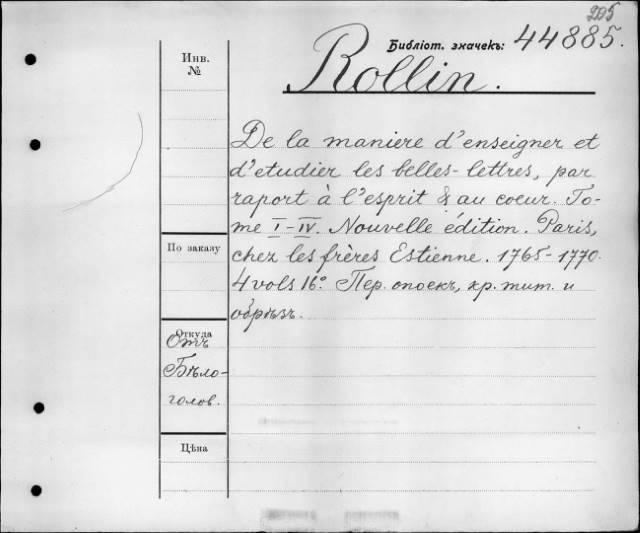 205
Библіот. значекъ: 44885.
Инв.
№
Rollin.
De la maniere d'enseigner et
d'etudier les belles-lettres, par
raport à l'esprit & au coeur. To-
me I-IV. Nouvelle édition. Paris,
chez les frères Estienne. 1765-1770.
4 vols 16º. Пер. опоек, кр. тит. и
обрѣзъ.
По заказу
Откуда
Отъ
Бѣло-
голов.
Цѣна